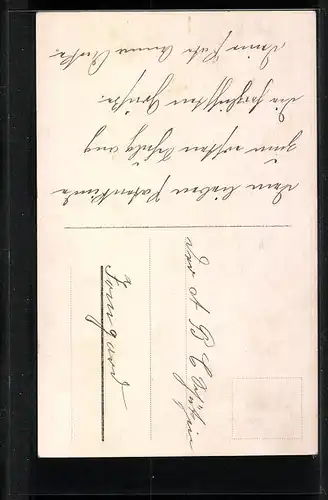 Dem lieben Patenkinde
zum ersten Schulgang
die herzlichsten Grüße.
Deine Pate Anna
Der A B C Schützin
Irmgard